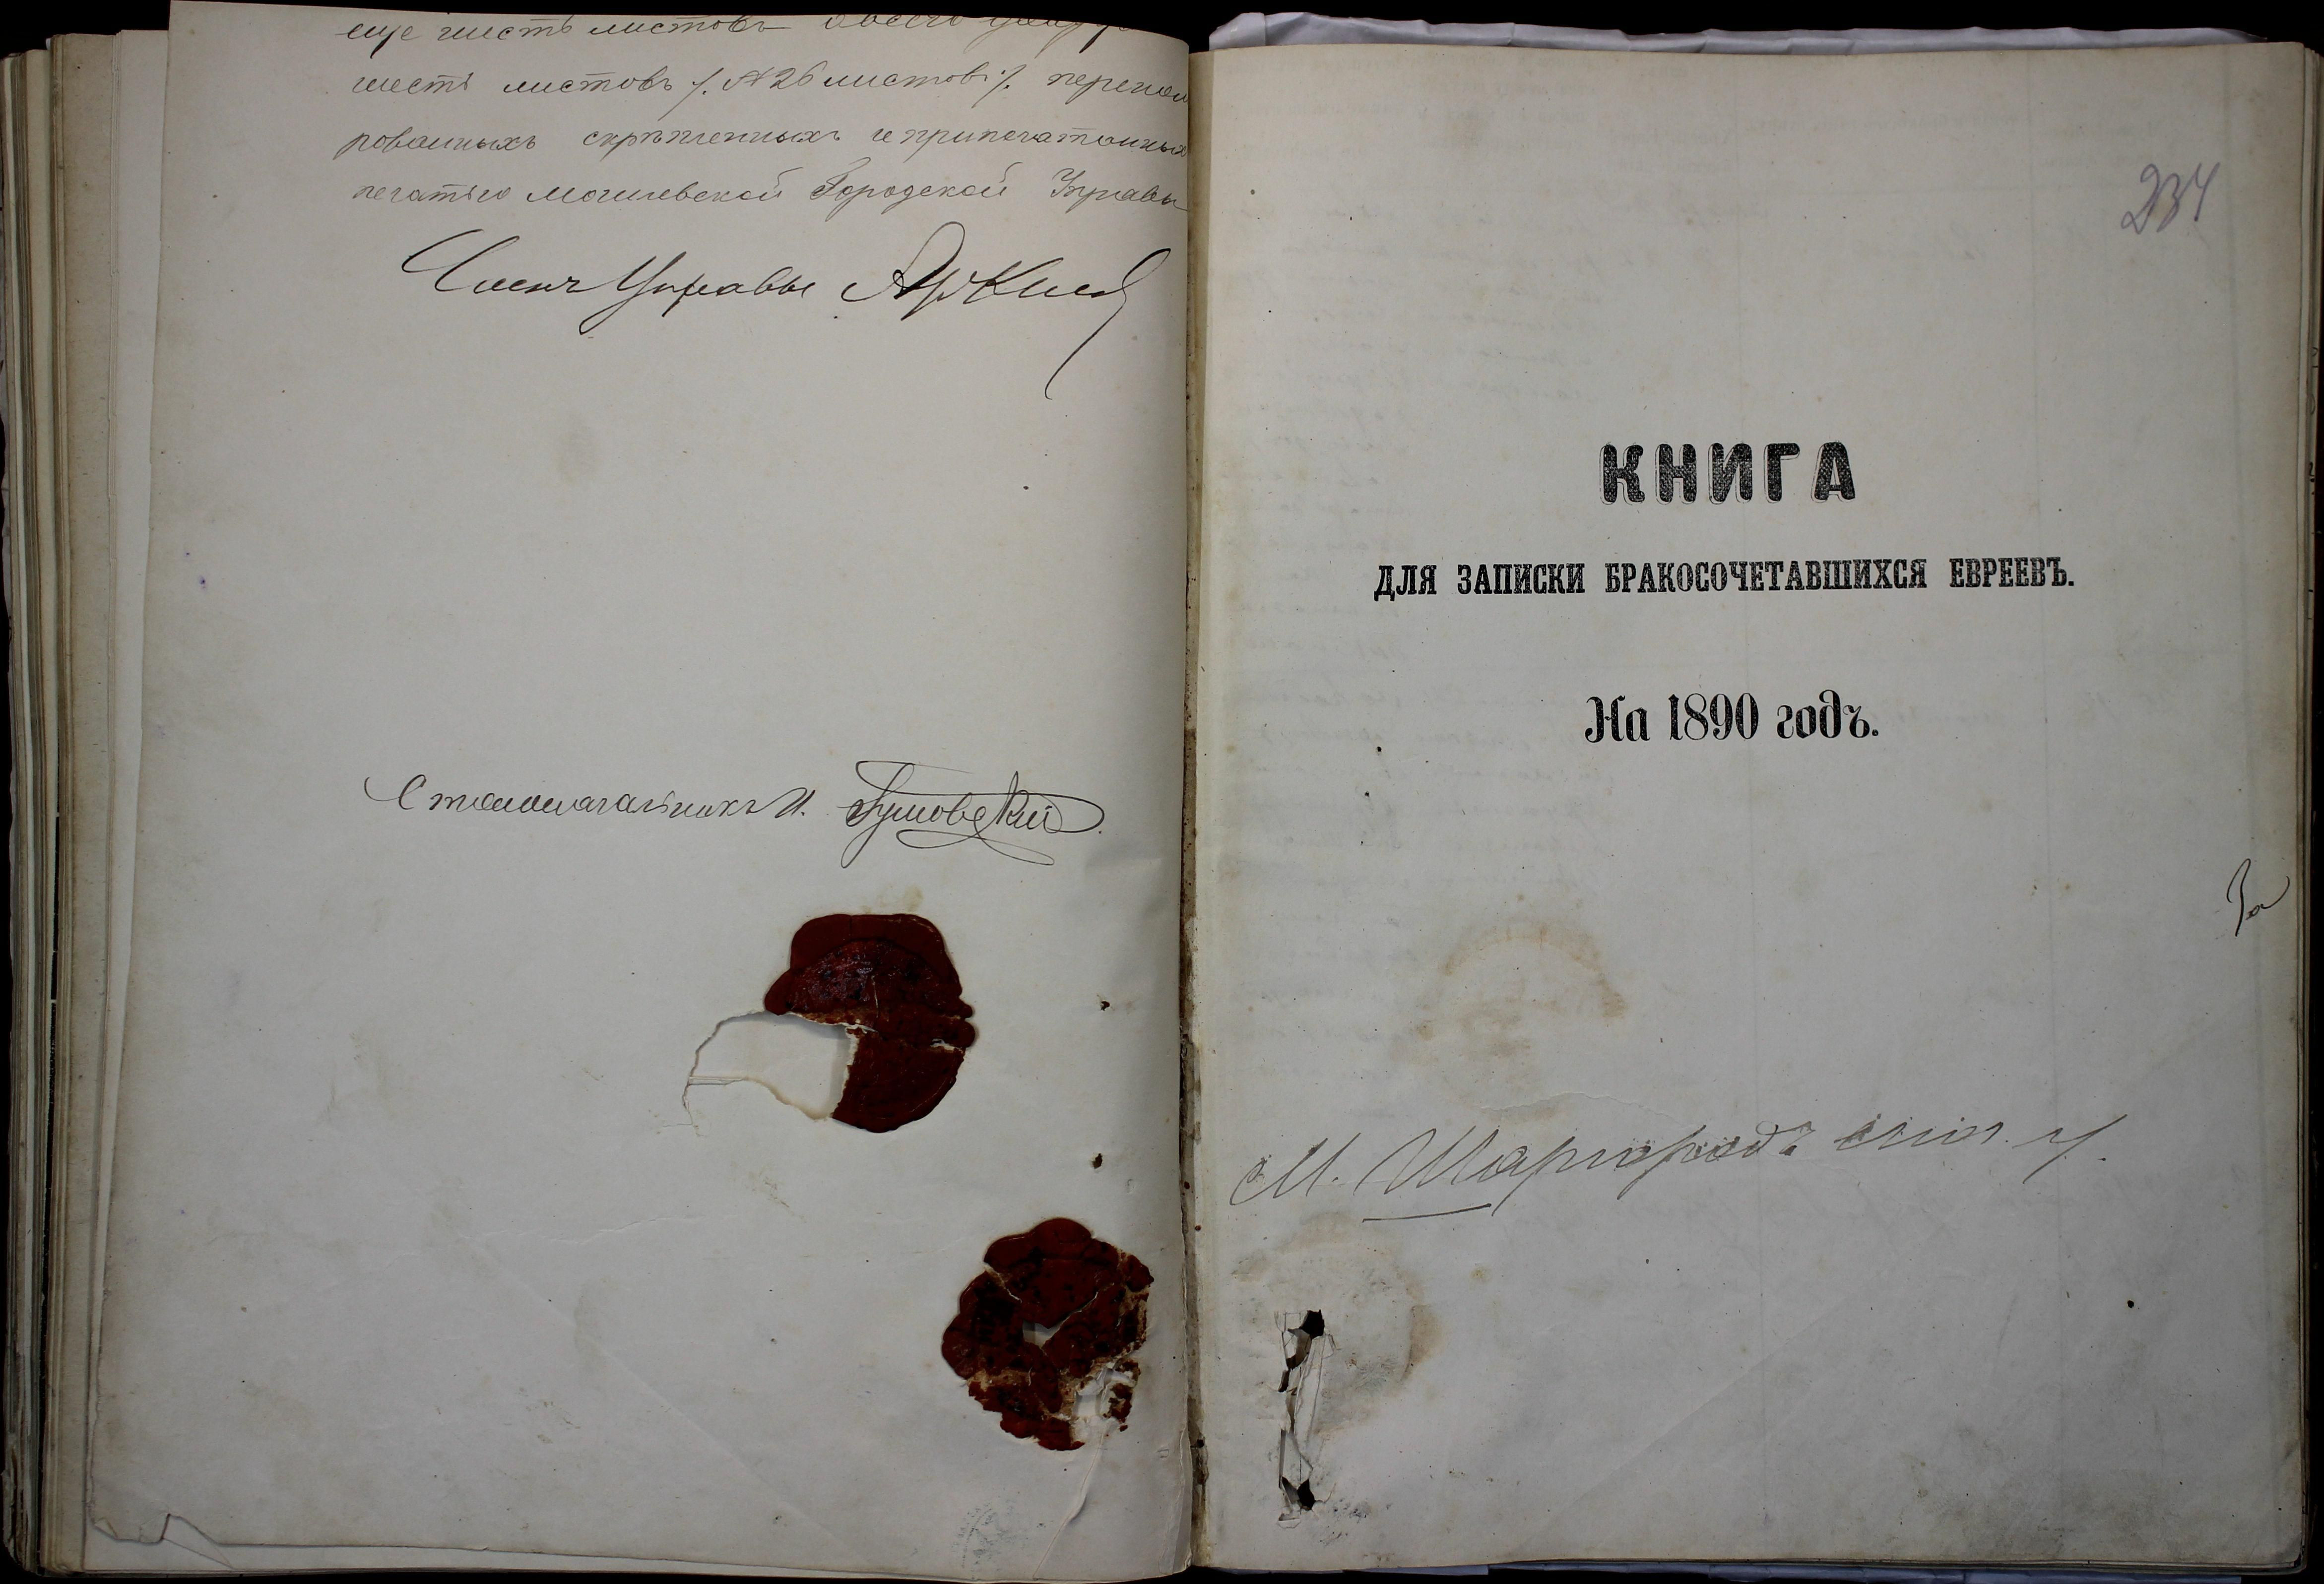 еще шесть листовъ а всего
шесть листовъ /. № 26 листовъ /.
рованныхъ скрѣпленныхъ и припечатанныхъ
печатью Могилевской Городской Управы
Членъ Управы
Столоначальникъ И.
234
КНИГА
ДЛЯ ЗАПИСКИ БРАКОСОЧЕТАВШИХСЯ ЕВРЕЕВЪ.
На 1890 годъ.
За
М. Шаргородъ